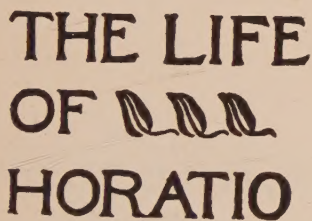 THE LIFE
OF
HORATIO